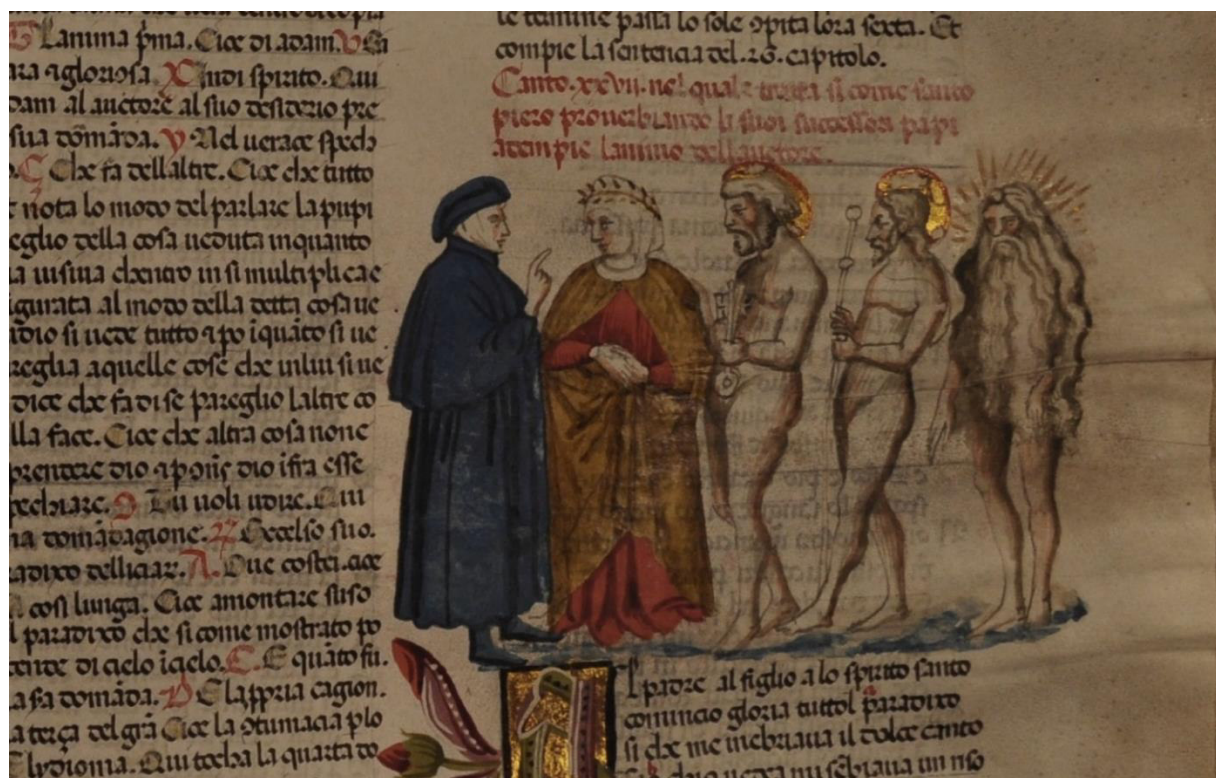 Lanima p̄ma. Cioe di adam. V Ei
ara ⁊ gloriosa. X Indi spirito. Qui
dam al auctore al suo desiderio pre
sua domāda. V Nel uerace spech
C Che fa dellaltre. Cioe che tutto
e nota lo modo del parlare la pupi
eglio della cosa ueduta inquanto
la uisiua chentro in si multiplicae
igurata al modo della detta cosa ue
idio si uede tutto ⁊ po īquāto si ue
reglia aquelle cose che inlui si ue
dice che fa di se pareglio laltre co
lla face. Cioe che altra cosa none
prendere dio ⁊ dio ifra esse
pechiare. Tu uoli udire. Qui
na domādagione. Eccelso suo.
radixo delliciar. A Due costei. cioe
cosi lunga. Cioe amontare suso
l paradixo che si come mostrato po
cende di cielo īcielo. C E quāto fu.
a fa domāda. E lappria cagion.
a terça del grā Cioe la ↄtumacia plo
lydionia. Qui tocha la quarta do
le termine passa lo sole ↄpita lora sexta. Et
compie la sentencia del .26. capitolo.
Canto .xxvii. nel quale tratta si come santo
piero prouerbiando li suoi successori papi
atempie lanimo dellauctore.
l padre al figlio a lo spirito santo
comincio gloria tuttol paradixo
si che me inebriaua il dolce canto